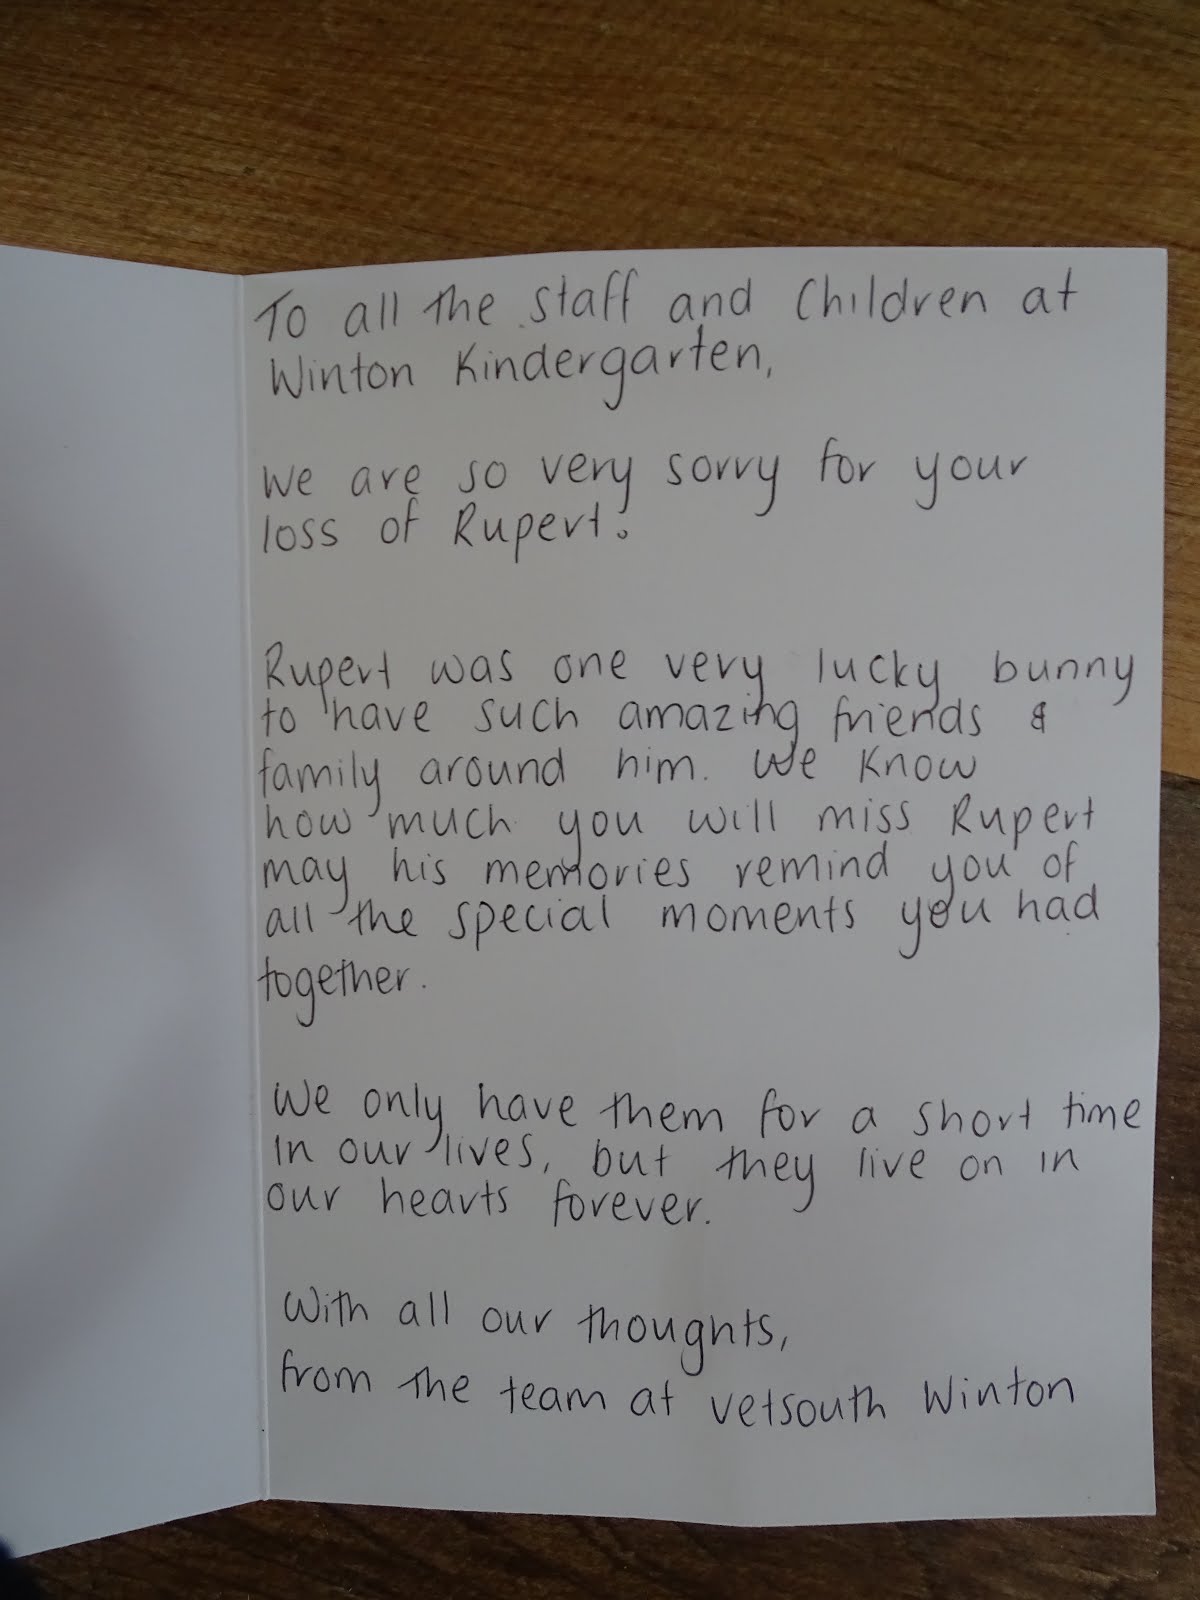 To all the staff and Children at
Winton Kindergarten,
We are so very sorry for your
loss of Rupert.
Rupert was one very lucky bunny
to have such amazing friends &
family around him. We know
how much you will miss Rupert
may his memories remind you of
all the special moments you had
together.
We only have them for a short time
in our lives, but they live on in
our hearts forever.
With all our thoughts,
from the team at vetsouth Winton